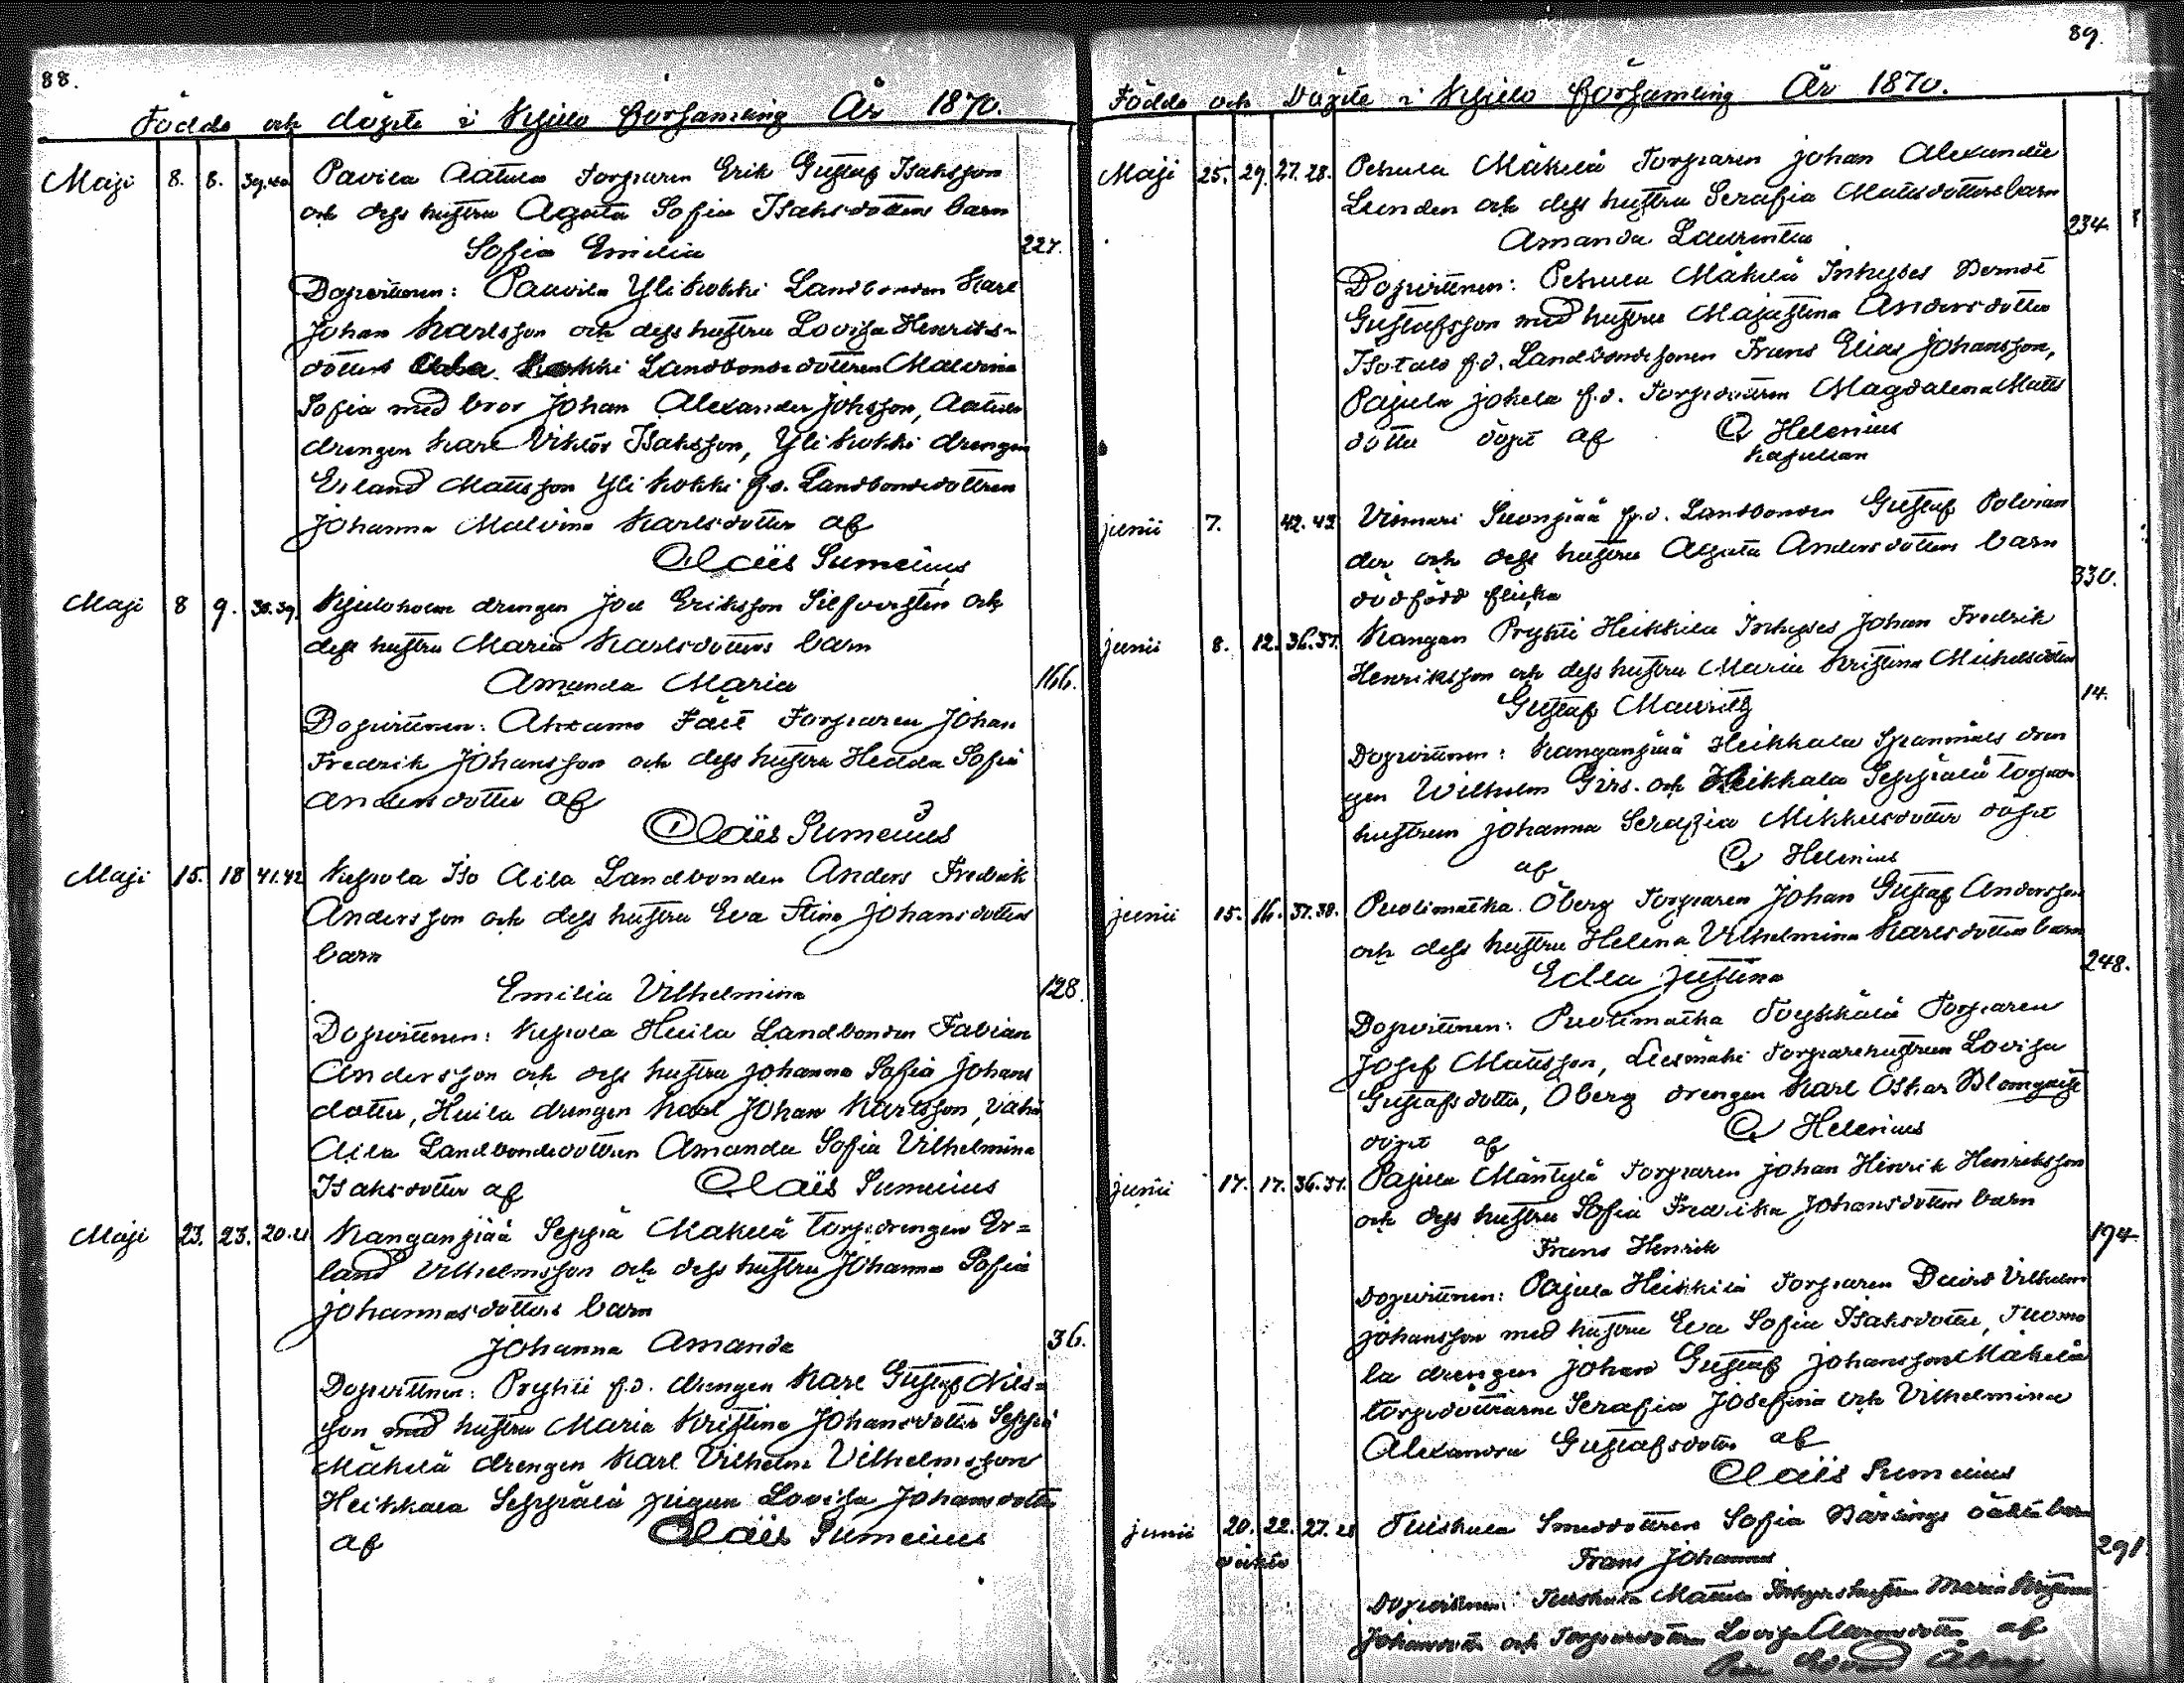 88.
Födde och döpte i Kjulo församling År 1870.
Maji 8. 8. 39.40. Pavila Aatula Torparen Erik Gustaf Isaksson
och dess hustru Agata Sofia Isaksdotters barn
Sofia Emilia 227.
Dopvittnen: Pauvila Ylikokki Landbonden Karl
Johan Karlsson och dess hustru Lovisa Henriks-
dotter Kokki Landbondedottren Malvina
Sofia med bror Johan Alexander Johsson, Aatula
drengen Karl Viktor Isaksson, Ylikokki drengen
Erland Mattsson Ylikokki f.d. Landbondedottren
Johanna Malvina Karlsdotter af
Claës Sumelius
Maji 8 9. 38.39. Kjuloholm drengen Joel Eriksson Silfversten och
dess hustru Maria Karlsdotters barn
Amanda Maria 166.
Dopvittnen: Torparen Johan
Fredrik Johansson och dess hustru Hedda Sofia
Andersdotter af
Claës Sumelius
Maji 15. 18 41.42 Kepola Iso Aila Landbonden Anders Fredrik
Andersson och dess hustru Eva Stina Johansdotters
barn
Emilia Vilhelmina 128.
Dopvittnen: Kepola Huila Landbonden Fabian
Andersson och dess hustru Johanna Sofia Johans
dotter, Huila drengen Karl Johan Karlsson, Vähä
Aila Landbondedottren Amanda Sofia Vilhelmina
Isaksdotter af Claës Sumelius
Maji 23. 23. 20.21 Kanganpää Seppä Mäkelä torpdrengen Er=
land Vilhelmsson och dess hustru Johanna Sofia
Johannesdotters barn
Johanna Amanda 36.
Dopvittnen: Prykti f.d. drengen Karl Gustaf Nils=
son med hustru Maria Kristina Johansdotter Seppä
Mäkelä drengen Karl Vilhelm Vilhelmsson
Heikkala Seppälä pigan Lovisa Johansdotter
af Claës Sumelius
89.
Födde och Döpte i Kjulo församling År 1870.
Maji 25. 29. 27.28. Pehula Mäkelä Torparen Johan Alexander
Lunden och dess hustru Serafia Mattsdotters barn
Amanda Laurentia 234.
Dopvittnen: Pehula Mäkelä Inhyses Berndt
Gustafsson med hustru Majastina Andersdotter
Isotalo f.d. Landbondesonen Frans Elias Johansson,
Pajula Jokela f.d. Torpdottren Magdalena Matts
dotter döpt af C Helenius
Kapellan
Junii 7. 42.43. Vismari Suonpää f.d. Landbonden Gustaf Polvian
der och dess hustru Agata Andersdotters barn
dödfödd flicka 330.
Junii 8. 12. 36.37. Kangan Prykti Heikkila Inhyses Johan Fredrik
Henriksson och dess hustru Maria Kristina Michelsdotters
Gustaf Mauritz 14.
Dopvittnen: Kanganpää Heikkala Spanmåls dren
gen Wilhelm Grrs. och Heikkala Seppälä torpare
hustrun Johanna Serafia Mikkelsdotter döpt
af C Helenius
Junii 15. 16. 37.38. Puolimatka Öberg Torparen Johan Gustaf Andersson
och dess hustru Helena Vilhelmina Karlsdotters barn
Edla Justina 248.
Dopvittnen: Puolimatka Torparen
Josef Mattsson, Liesmäki Torparehustrun Lovisa
Gustafsdotter, Öberg drengen Karl Oskar Blomqvist
döpt af C Helenius
Junii 17. 17. 36.37. Pajula Mäntylä Torparen Johan Hinrik Henriksson
och dess hustru Sofia Fredrika Johansdotters barn
Frans Henrik 194.
Dopvittnen: Pajula Heikkilä Torparen David Vilhelm
Johansson med hustru Eva Sofia Isaksdotter, Tuomo
la drengen Johan Gustaf Johansson Mäkelä
torpdöttrarne Serafia Josefina och Vilhelmina
Alexandra Gustafsdotter af
Claës Sumelius
Junii 20. 22. 27.28 Tuiskula Smeddottren Sofia oäkta barn
oäkta Frans Johannes 291.
Dopvittnen: Tuiskula Mattila Inhyses hustrun Maria Kristina
Johansdotter och Torpardottren Lovisa af